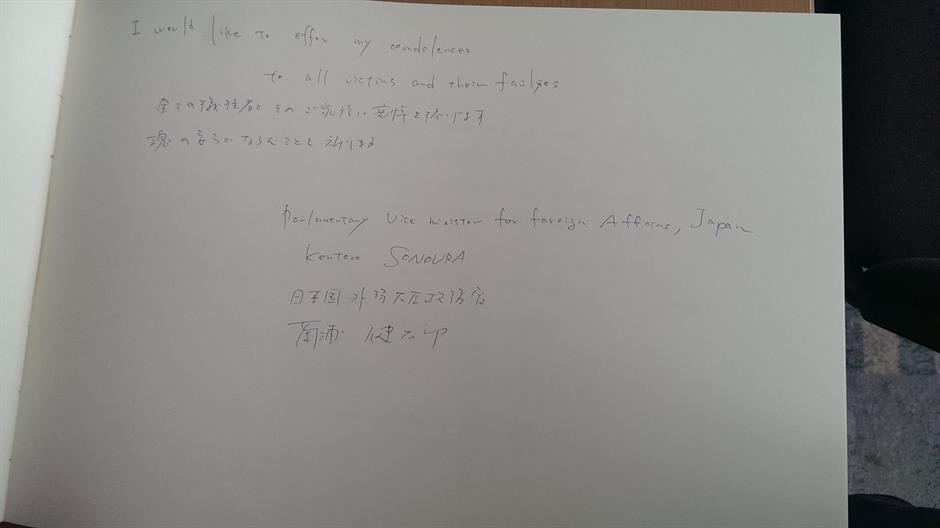 I would like to offer my condolences
to all victims and their failies
全ての犠牲者とそのご家族に哀悼を捧げます
魂の安らかならんことを祈ります
Parlamentary Vice minister for foreign Affairs, Japan
Kentaro SONOURA
日本国外務大臣政務官
薗浦 健太郎